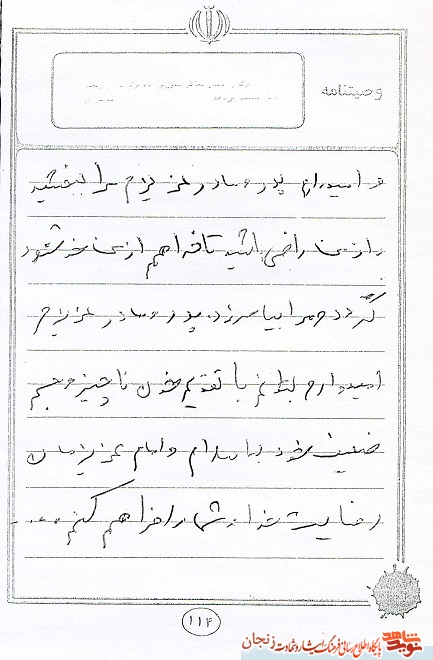 وصیتنامه
و امیدوارم پدر و مادر عزیزم مرا ببخشید
و از من راضی باشید تا خدا هم از من خوشنود
گردد و مرا بیامرزد، پدر و مادر عزیزم
امیدوارم بتوانم با تقدیم خون ناچیز و جسم
ضعیف خود به اسلام و امام عزیزمان
رضایت خدا و شما را فراهم کنم ....
۱۱۴
نوید شاهد
پایگاه اطلاع رسانی فرهنگ ایثار و شهادت زنجان